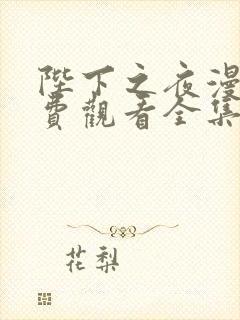 陛下之夜漫
費觀看全集
花梨